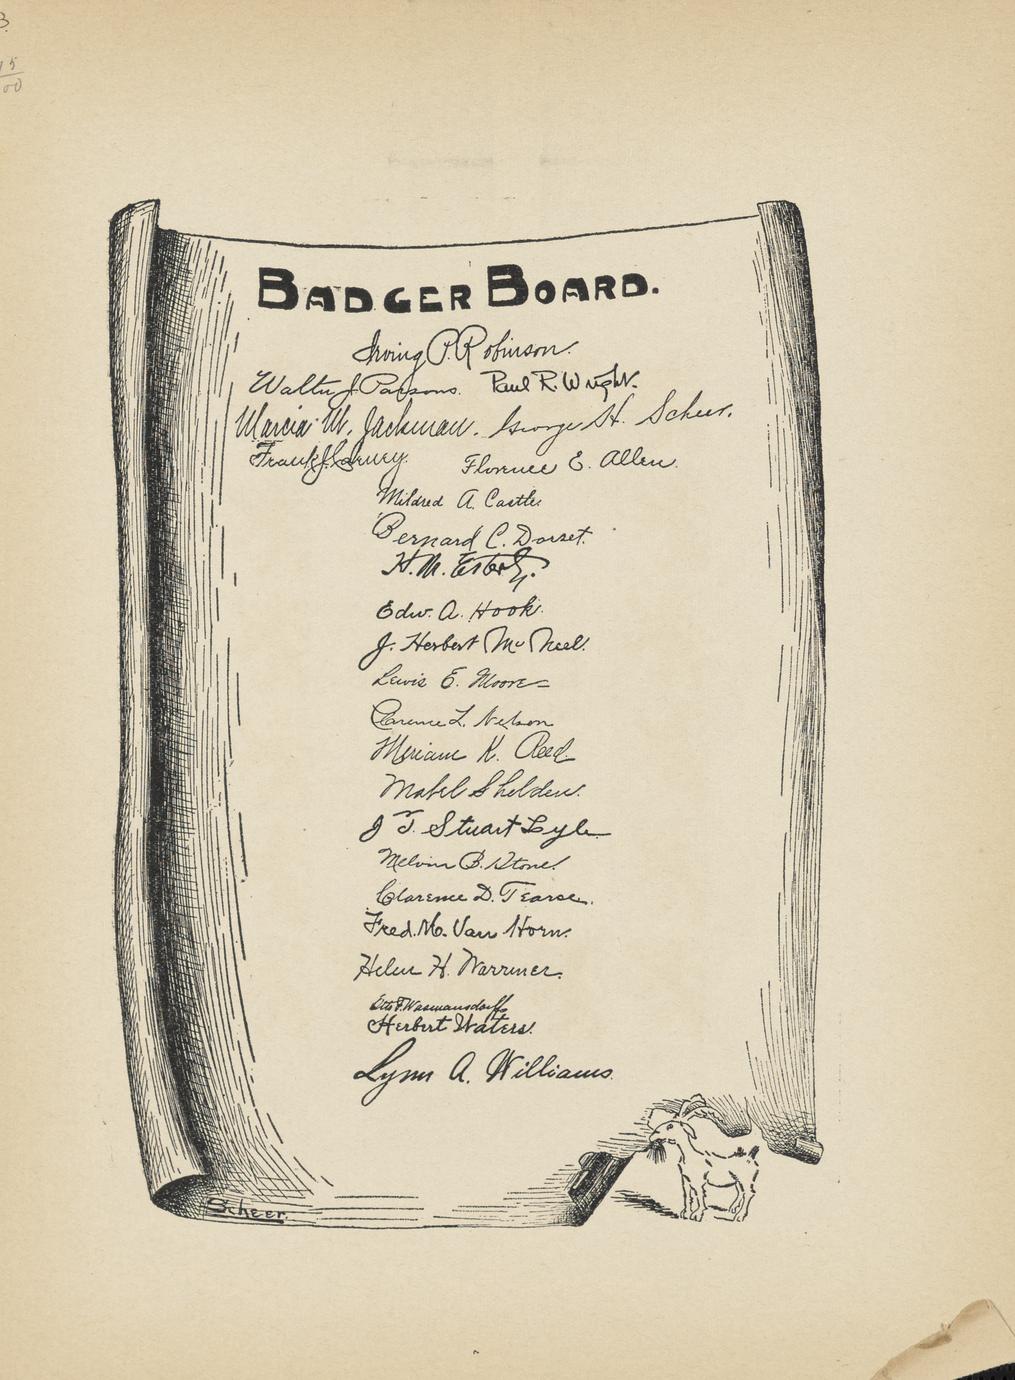 3.
15
00
BADGER BOARD.
Irving P. Robinson.
Walter J. Parsons. Paul R. Wright.
Marcia M. Jackman. George H. Scheer.
Frank J. Carney. Florence E. Allen.
Mildred A. Castle.
Bernard C. Dorset.
H. M. Esterly.
Edw. A. Hook.
J. Herbert McNeel.
Lewis E. Moore
Clarence L. Nelson
Miriam K. Reed
Mabel Shelden.
J T. Stuart Lyle
Melvin B. Stone.
Clarence D. Tearse.
Fred. M. Van Horn.
Helen H. Warriner.
Otto F. Wasmansdorff
Herbert Waters.
Lynn A. Williams.
Scheer.